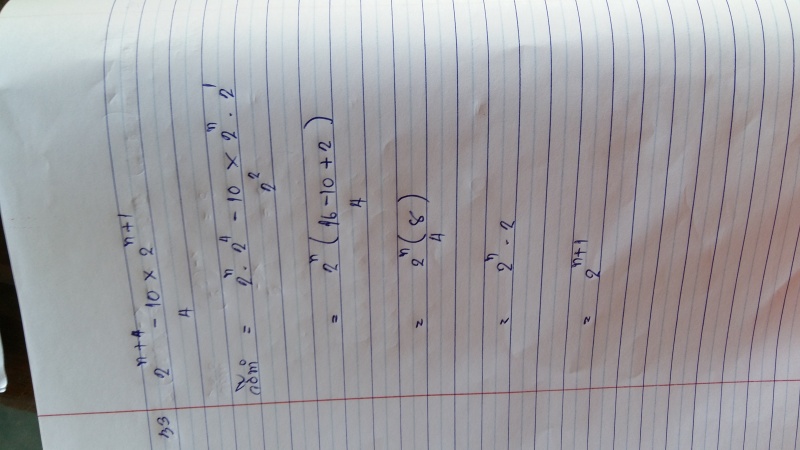 33 2ⁿ⁺⁴ - 10 × 2ⁿ⁺¹
4
= 2ⁿ · 2⁴ - 10 × 2ⁿ · 2¹
2²
= 2ⁿ (16 - 10 + 2)
4
= 2ⁿ (8)
4
= 2ⁿ · 2
= 2ⁿ⁺¹